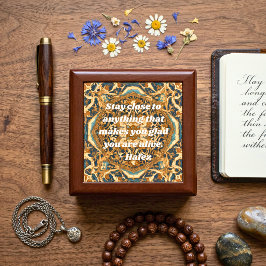 Stay close to
anything that
makes you glad
you are alive.
- Hafez
Stay
long
and c
the f
then
the f
withe